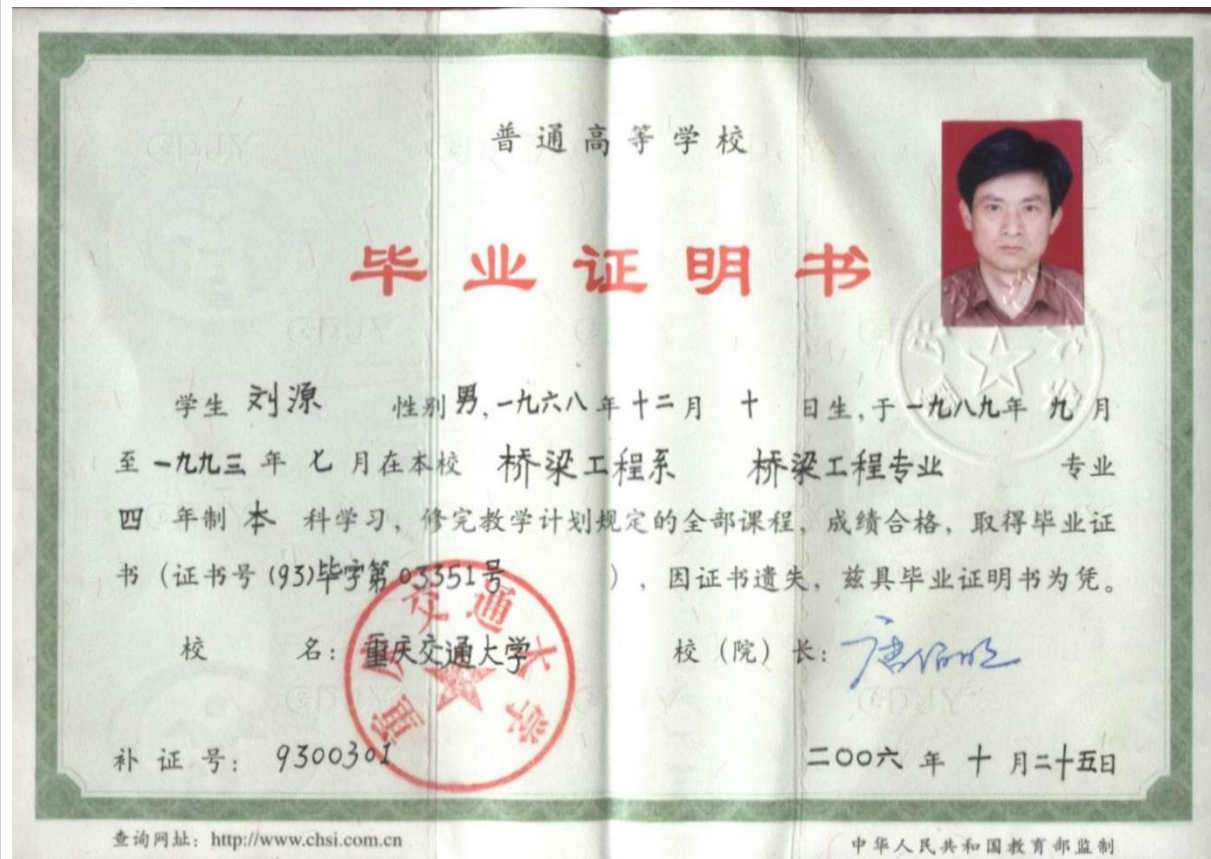 普通高等学校
毕业证明书
学生 刘源 性别 男, 一九六八 年 十二 月 十 日生, 于 一九八九年 九 月
至 一九九三 年 七 月在本校 桥梁工程系 桥梁工程专业 专业
四 年制 本 科学习, 修完教学计划规定的全部课程, 成绩合格, 取得毕业证
书 (证书号 (93)毕字第03351号 ), 因证书遗失, 兹具毕业证明书为凭。
校 名: 重庆交通大学 校 (院) 长: 唐伯明
重庆交通大学
补 证 号: 9300301 二〇〇六 年 十 月二十五日
查询网址: http://www.chsi.com.cn 中华人民共和国教育部监制